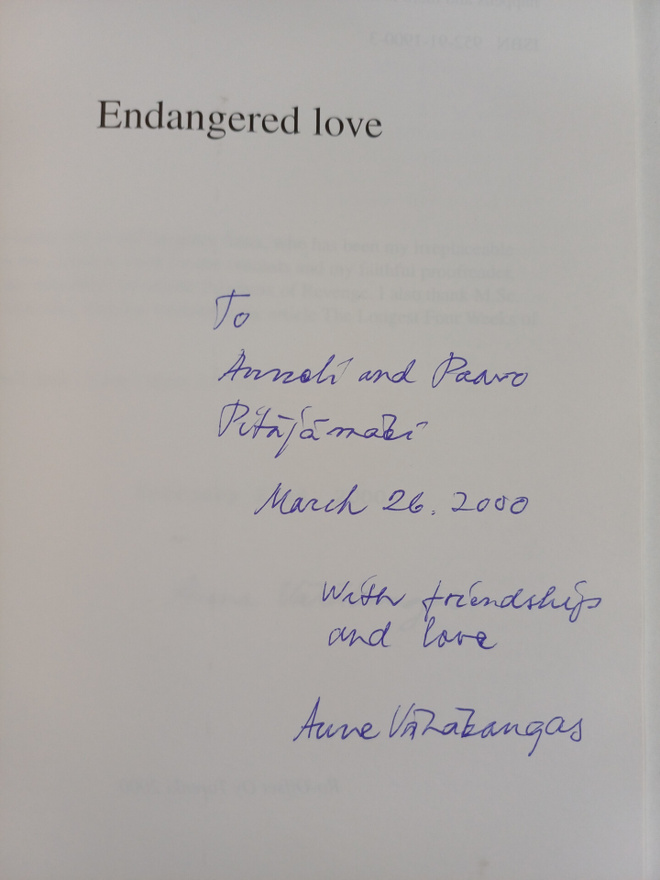 Endangered love
To
Anneli and Paavo
Pitäjämäki
March 26. 2000
With friendship
and love
Aune Vähäkangas